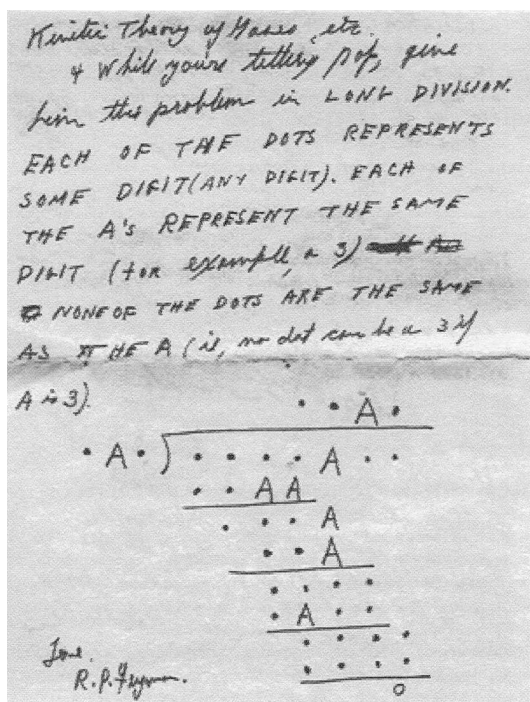 Kinetic Theory of Gases, etc.
& While you're telling pop, give
him this problem in LONG DIVISION.
EACH OF THE DOTS REPRESENTS
SOME DIGIT (ANY DIGIT). EACH OF
THE A's REPRESENT THE SAME
DIGIT (for example, a 3)
NONE OF THE DOTS ARE THE SAME
AS THE A (ie, no dot can be a 3 if
A is 3).
. . A .
. A . ) . . . . A . .
. . A A
. . . A
. . A
. . . .
. A . .
. . . .
. . . .
0
R.P. Feynman.